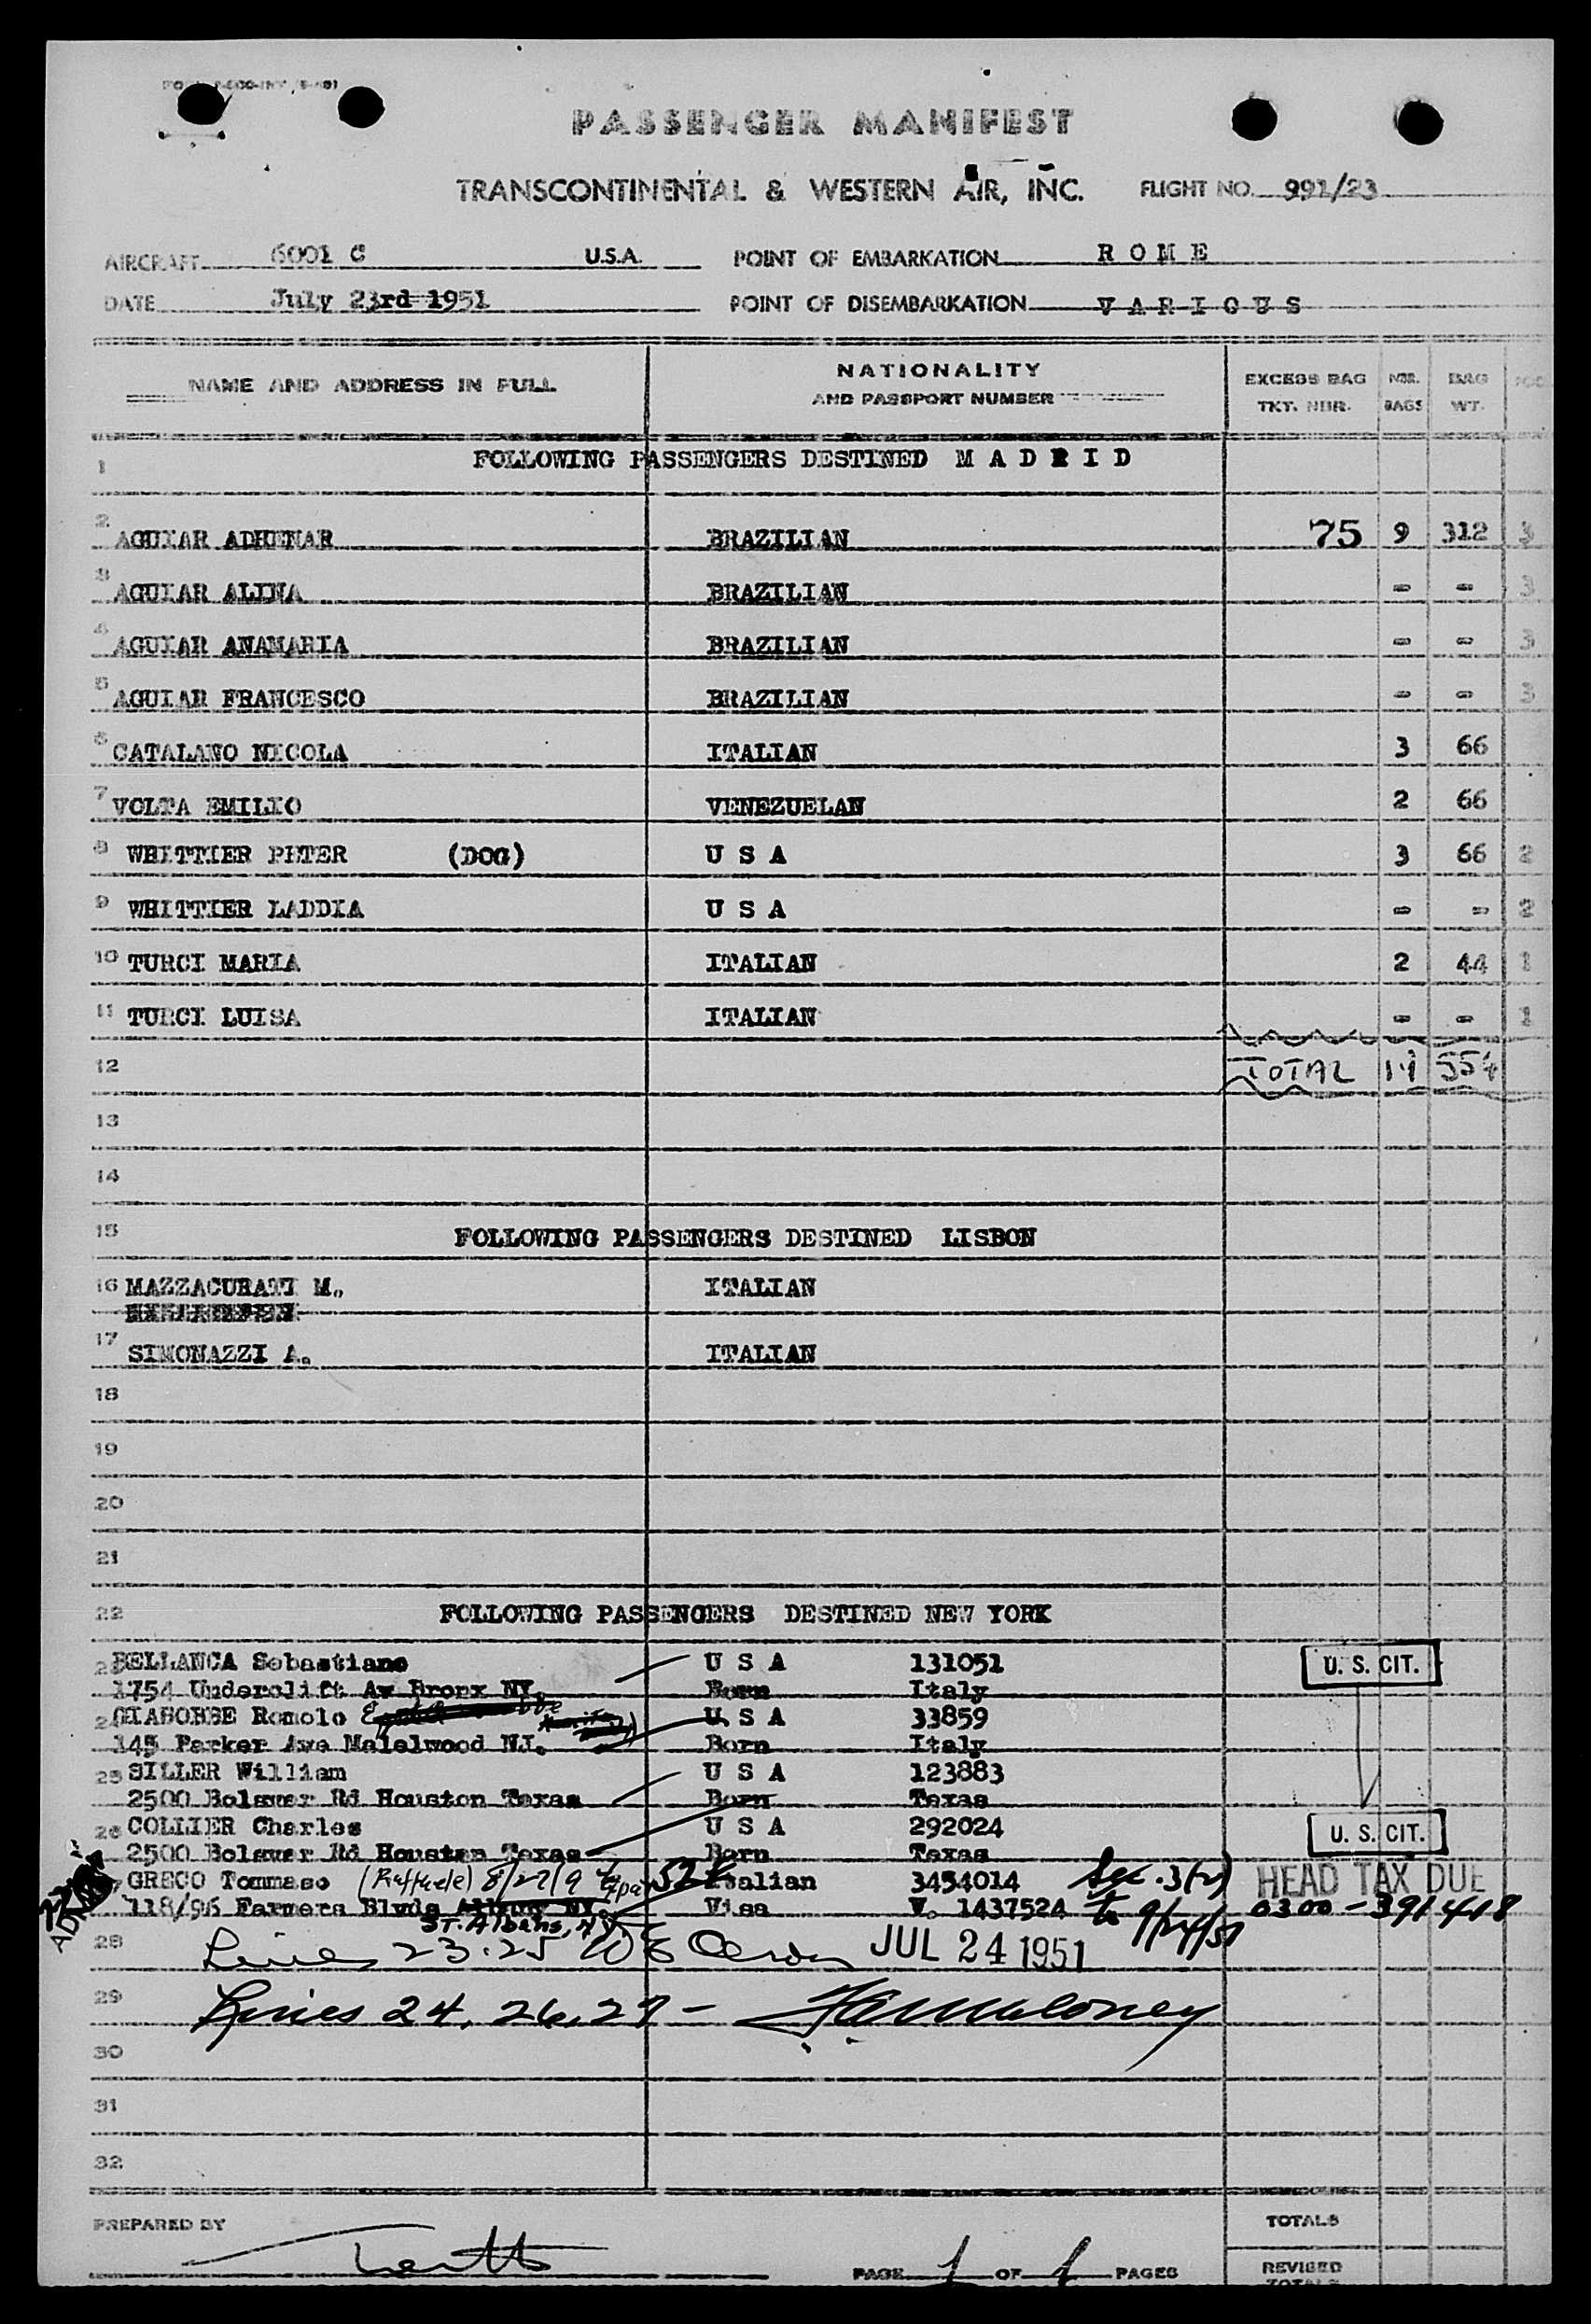 PASSENGER MANIFEST
TRANSCONTINENTAL & WESTERN AIR, INC. FLIGHT NO. 991/23
AIRCRAFT 6001 C U.S.A. POINT OF EMBARKATION R O M E
DATE July 23rd 1951 POINT OF DISEMBARKATION V A R I O U S
NAME AND ADDRESS IN FULL NATIONALITY AND PASSPORT NUMBER EXCESS BAG TKT. NBR. NBR. BAGS BAG WT.
1 FOLLOWING PASSENGERS DESTINED M A D R I D
2 AGUIAR ADHEMAR BRAZILIAN 75 9 312 3
3 AGUIAR ALINA BRAZILIAN - - 3
4 AGUIAR ANAMARIA BRAZILIAN - - 3
5 AGUIAR FRANCESCO BRAZILIAN - - 3
6 CATALANO NICOLA ITALIAN 3 66
7 VOLTA EMILIO VENEZUELAN 2 66
8 WHITTIER PETER (DOG) U S A 3 66 2
9 WHITTIER LADDIA U S A - - 2
10 TURCI MARIA ITALIAN 2 44 1
11 TURCI LUISA ITALIAN - - 1
12 TOTAL 19 554
13
14
15 FOLLOWING PASSENGERS DESTINED LISBON
16 MAZZACURATI M. ITALIAN
17 SIMONAZZI A. ITALIAN
18
19
20
21
22 FOLLOWING PASSENGERS DESTINED NEW YORK
23 BELLANCA Sebastiano U S A 131051 U. S. CIT.
1754 Underclift Av Bronx NY. Born Italy
24 GIABORBE Romolo U S A 33859
145 Parker Ave Malelwood NJ. Born Italy
25 SILLER William U S A 123883
2500 Bolsver Rd Houston Texas Born Texas
26 COLLIER Charles U S A 292024 U. S. CIT.
2500 Bolsver Rd Houston Texas Born Texas
GRECO Tommaso (Raffaele) 8/27/9 52 Italian 3454014 Sec. 3(2) HEAD TAX DUE
118/96 Farmers Blvds Albany NY. Visa V. 1437524 to 9/24/51 0300-391418
ST. Albans, N.Y.
28 Lines 23.25 JUL 24 1951
29 Lines 24, 26, 27 - Maloney
30
31
32
PREPARED BY TOTALS
PAGE 1 OF 1 PAGES REVISED TOTALS